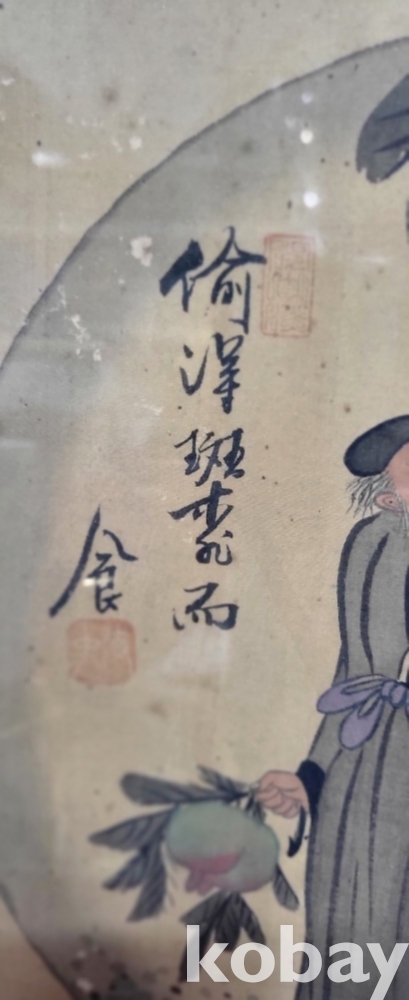 偷得班桃而
食
kobay